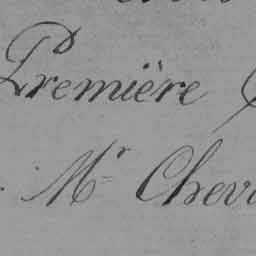 Première
Mr Chev